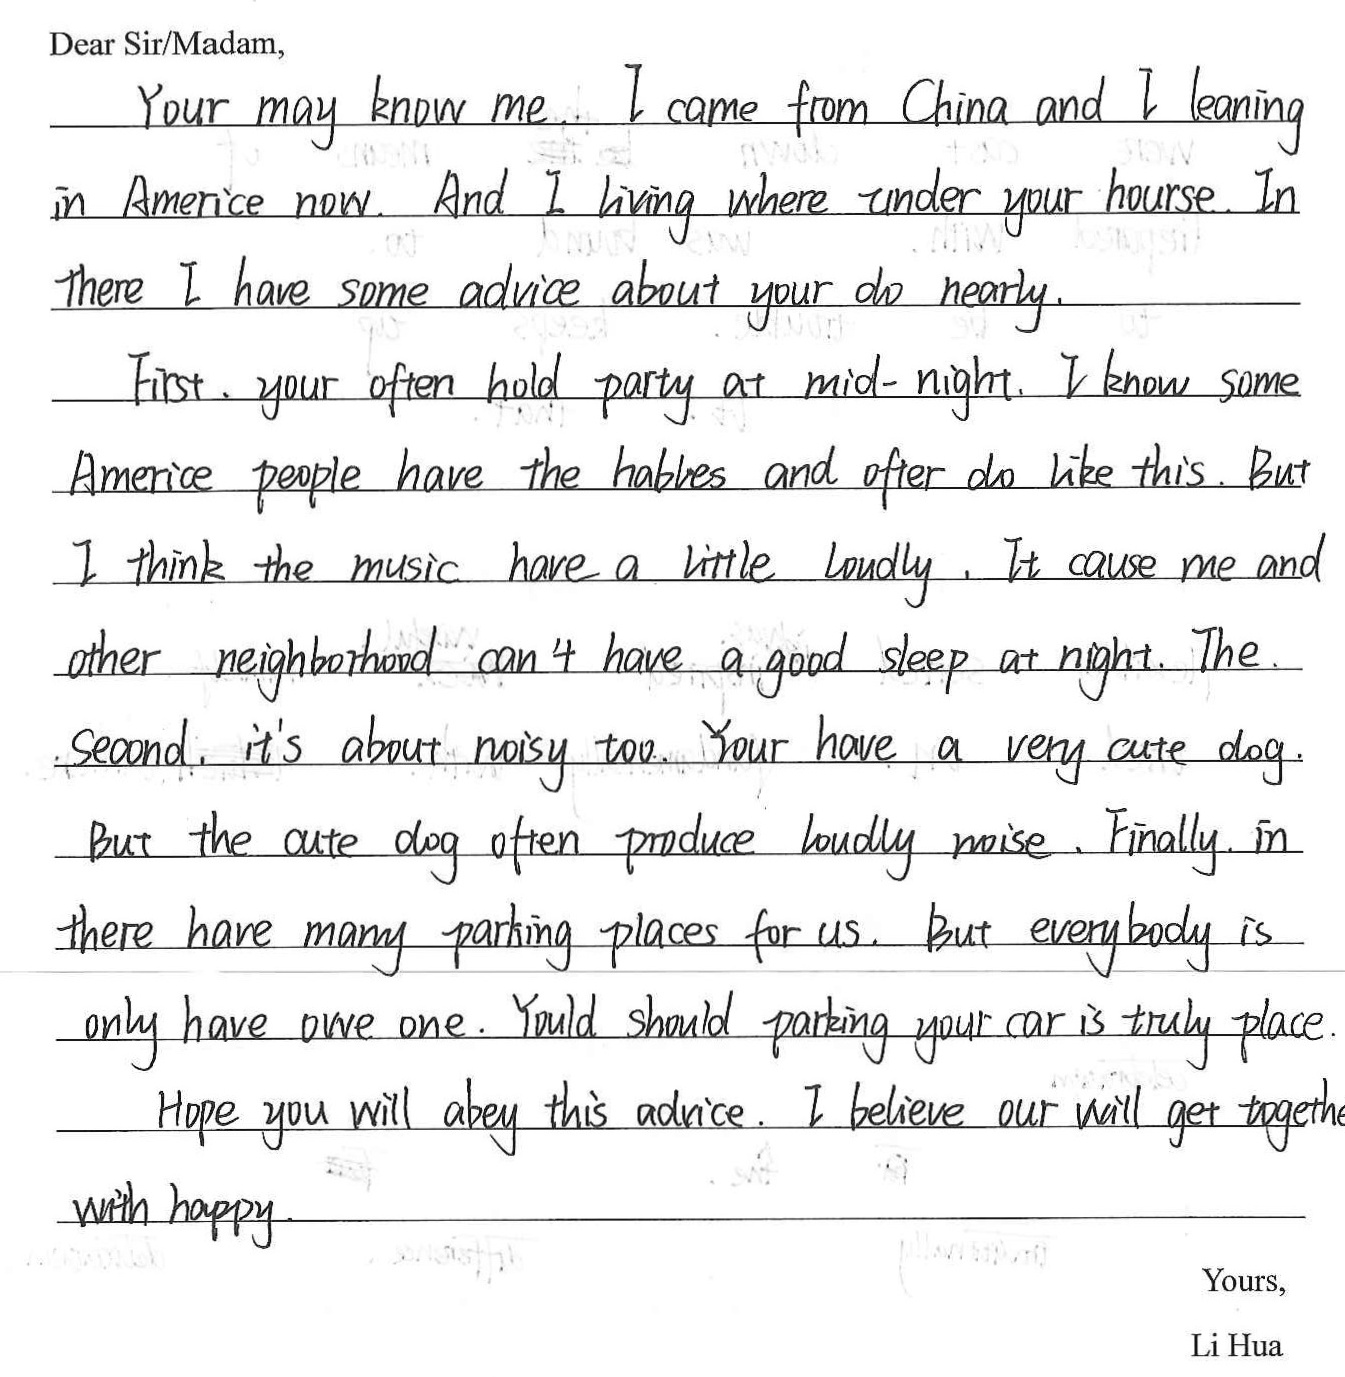 Dear Sir/Madam,
Your may know me. I came from China and I leaning
in Americe now. And I living where under your hourse. In
there I have some advice about your do nearly.
First. your often hold party at mid-night. I know some
Americe people have the habbes and ofter do like this. But
I think the music have a little loudly. It cause me and
other neighborhood can't have a good sleep at night. The
second. it's about noisy too. Your have a very cute dog.
But the cute dog often produce loudly noise. Finally. in
there have many parking places for us. But everybody is
only have owe one. Yould should parking your car is truly place.
Hope you will abey this advice. I believe our will get togethe
with happy.
Yours,
Li Hua